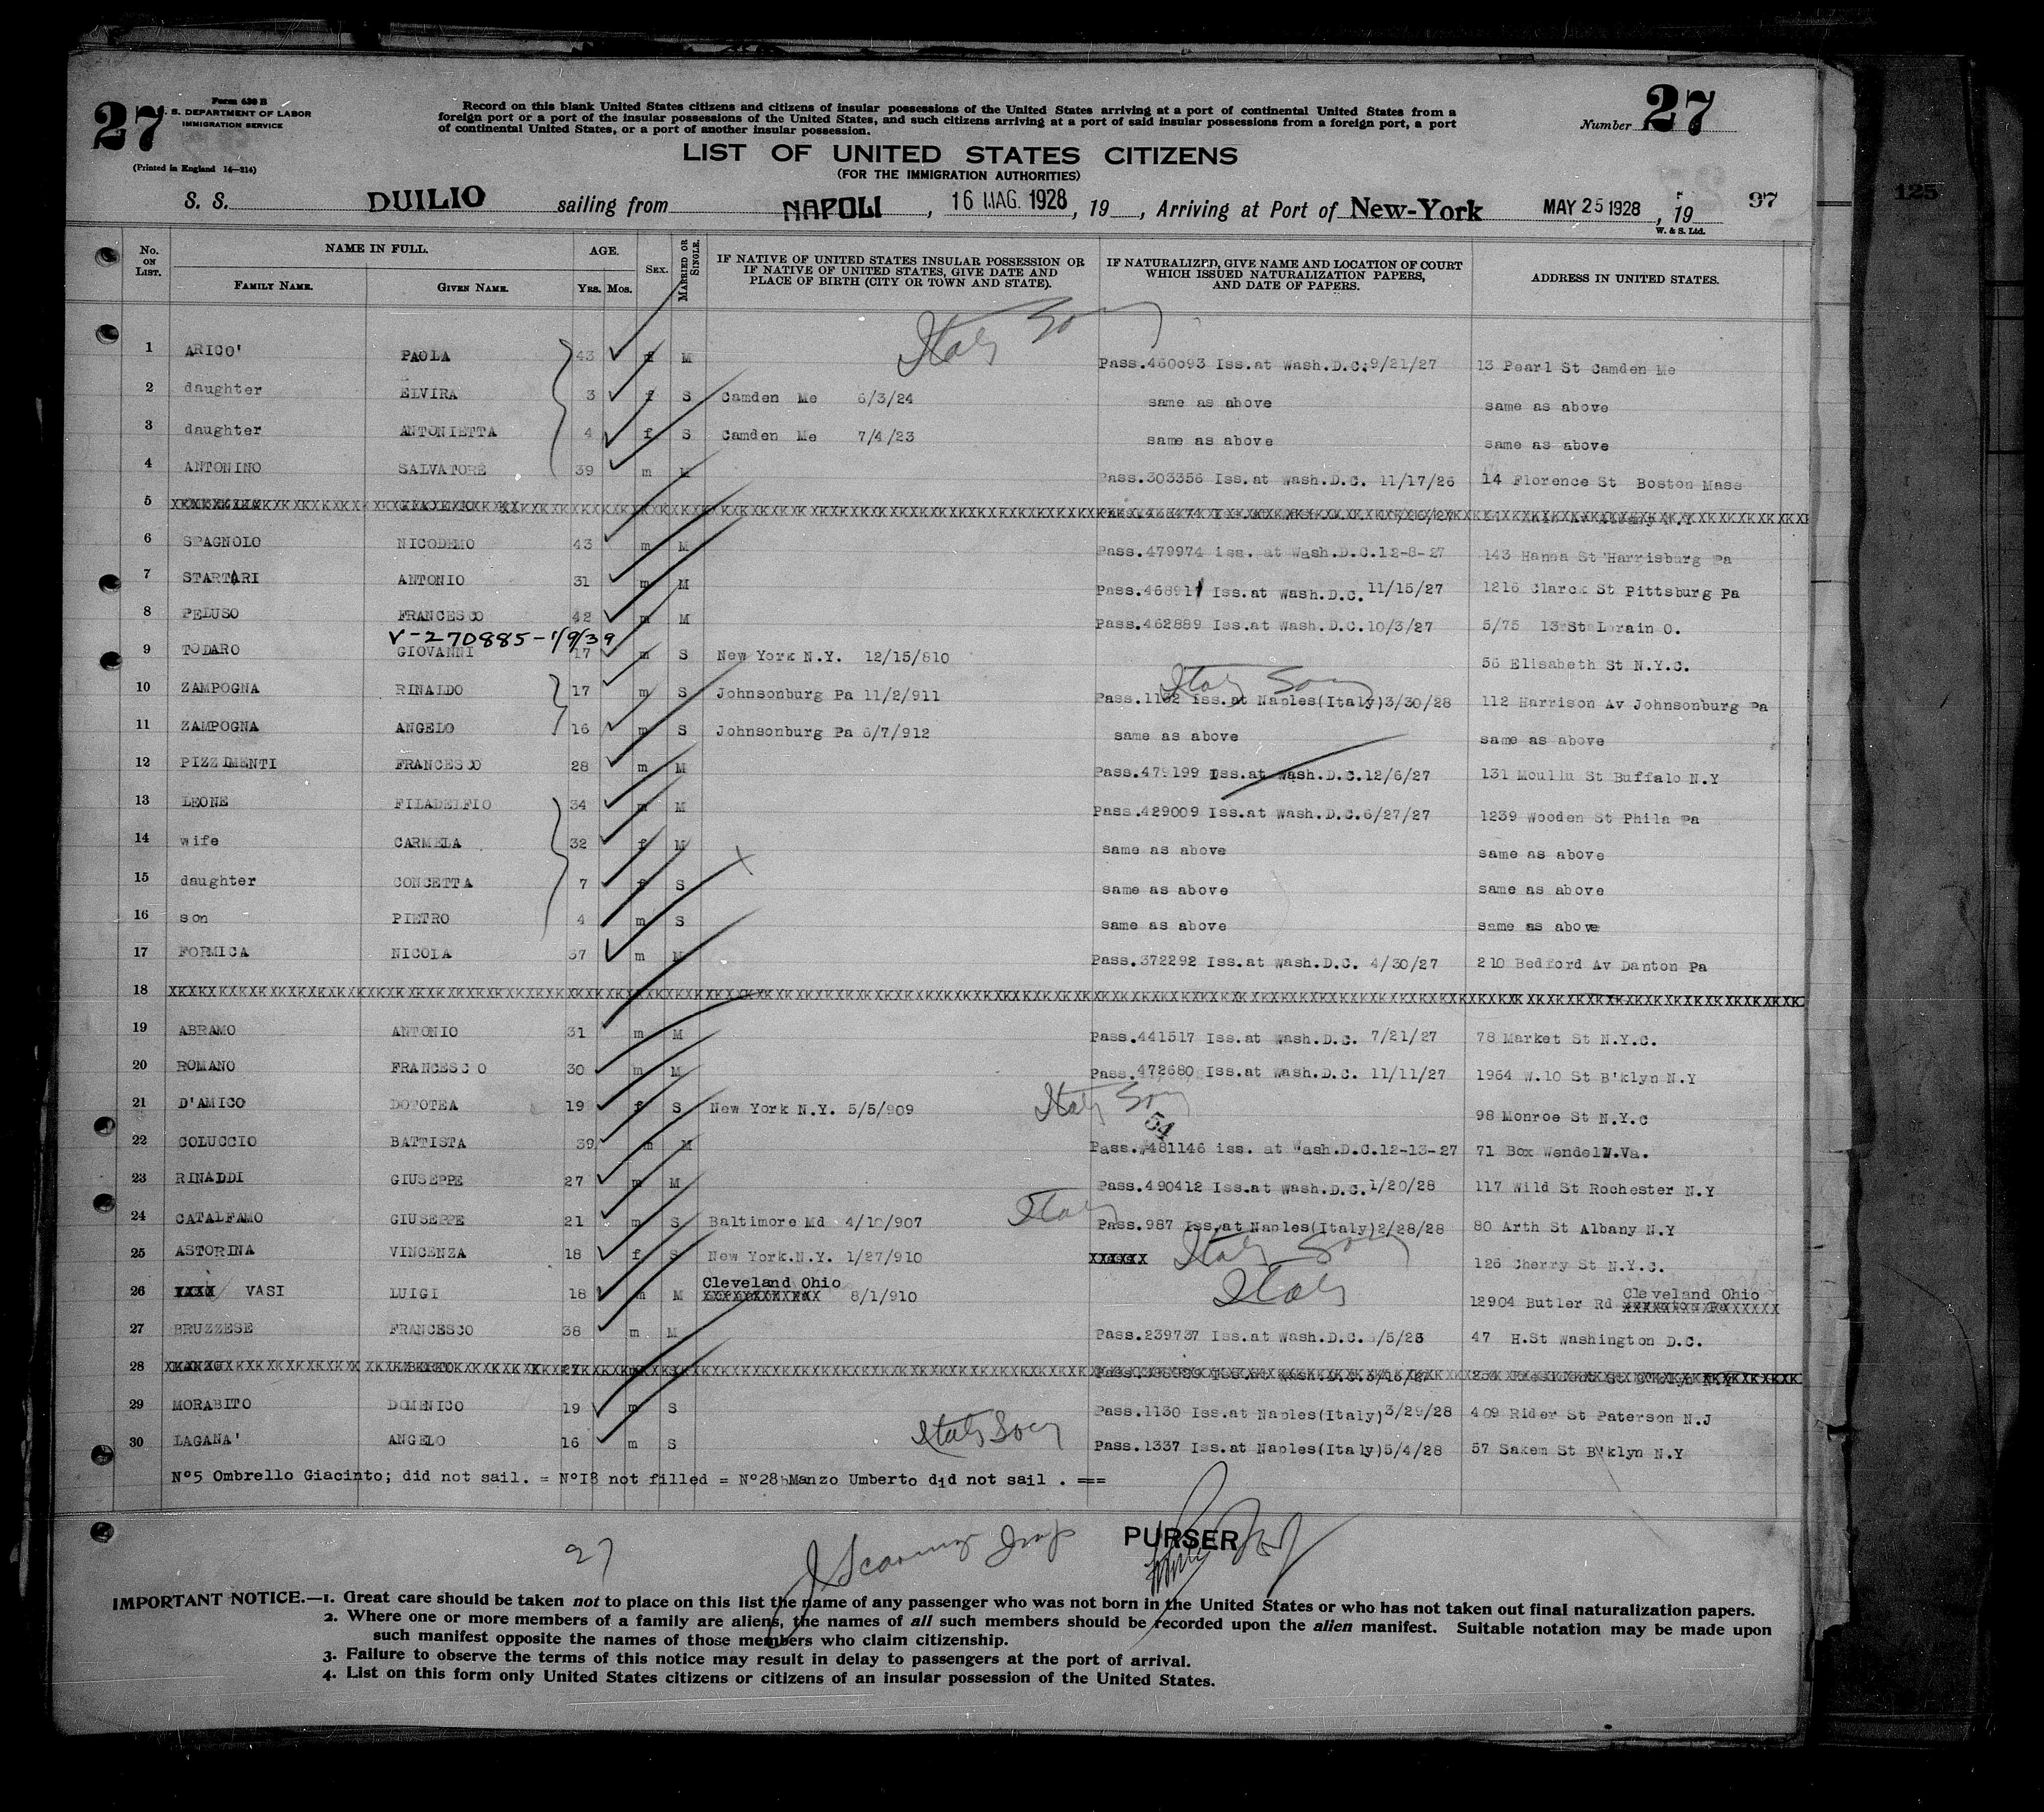 27
Form 630 B
S. DEPARTMENT OF LABOR
IMMIGRATION SERVICE
(Printed in England 14—314)
Record on this blank United States citizens and citizens of insular possessions of the United States arriving at a port of continental United States from a
foreign port or a port of the insular possessions of the United States, and such citizens arriving at a port of said insular possessions from a foreign port, a port
of continental United States, or a port of another insular possession.
Number 27
LIST OF UNITED STATES CITIZENS
(FOR THE IMMIGRATION AUTHORITIES)
S. S. DUILIO sailing from NAPOLI, 16 MAG. 1928, 19 , Arriving at Port of New-York MAY 25 1928, 19 97
W. & S. Ltd.
125
No. ON LIST. NAME IN FULL. FAMILY NAME. GIVEN NAME. AGE. YRS. MOS. SEX. MARRIED OR SINGLE. IF NATIVE OF UNITED STATES INSULAR POSSESSION OR IF NATIVE OF UNITED STATES, GIVE DATE AND PLACE OF BIRTH (CITY OR TOWN AND STATE). IF NATURALIZED, GIVE NAME AND LOCATION OF COURT WHICH ISSUED NATURALIZATION PAPERS, AND DATE OF PAPERS. ADDRESS IN UNITED STATES.
Italy
1 ARICO' PAOLA 43 f M Pass.460093 Iss.at Wash.D.C.9/21/27 13 Pearl St Camden Me
2 daughter ELVIRA 3 f S Camden Me 6/3/24 same as above same as above
3 daughter ANTONIETTA 4 f S Camden Me 7/4/23 same as above same as above
4 ANTONINO SALVATORE 39 m M Pass.303356 Iss.at Wash.D.C. 11/17/26 14 Florence St Boston Mass
5
6 SPAGNOLO NICODEMO 43 m M Pass.479974 iss. at Wash.D.C.12-8-27 143 Hanna St Harrisburg Pa
7 STARTARI ANTONIO 31 m M Pass.468911 Iss.at Wash.D.C. 11/15/27 1216 Clarck St Pittsburg Pa
8 PELUSO FRANCESCO 42 m M Pass.462889 Iss.at Wash.D.C.10/3/27 5/75 13 St Lorain O.
V-270885-1/9/39
9 TODARO GIOVANNI 17 m S New York N.Y. 12/15/810 56 Elisabeth St N.Y.C.
Italy
10 ZAMPOGNA RINALDO 17 m S Johnsonburg Pa 11/2/911 Pass.1162 Iss.at Naples(Italy)3/30/28 112 Harrison Av Johnsonburg Pa
11 ZAMPOGNA ANGELO 16 m S Johnsonburg Pa 6/7/912 same as above same as above
12 PIZZIMENTI FRANCESCO 28 m M Pass.479199 Iss.at Wash.D.C.12/6/27 131 Moullu St Buffalo N.Y
13 LEONE FILADELFIO 34 m M Pass.429009 Iss.at Wash.D.C.6/27/27 1239 Wooden St Phila Pa
14 wife CARMELA 32 f M same as above same as above
15 daughter CONCETTA 7 f S same as above same as above
16 son PIETRO 4 m S same as above same as above
17 FORMICA NICOLA 37 m M Pass.372292 Iss.at Wash.D.C. 4/30/27 210 Bedford Av Danton Pa
18
19 ABRAMO ANTONIO 31 m M Pass.441517 Iss.at Wash.D.C. 7/21/27 78 Market St N.Y.C.
20 ROMANO FRANCESCO 30 m M Pass.472680 Iss.at Wash.D.C. 11/11/27 1964 W.10 St B'klyn N.Y
21 D'AMICO DOTOTEA 19 f S New York N.Y. 5/5/909 Italy 54 98 Monroe St N.Y.C
22 COLUCCIO BATTISTA 39 m M Pass.#481146 iss. at Wash.D.C.12-13-27 71 Box Wendel W.Va.
23 RINALDI GIUSEPPE 27 m M Pass.490412 Iss.at Wash.D.C.1/20/28 117 Wild St Rochester N.Y
24 CATALFAMO GIUSEPPE 21 m S Baltimore Md 4/10/907 Italy Pass.987 Iss.at Naples(Italy)2/28/28 80 Arth St Albany N.Y
25 ASTORINA VINCENZA 18 f S New York.N.Y. 1/27/910 Italy 126 Cherry St N.Y.C.
26 VASI LUIGI 18 m M Cleveland Ohio 8/1/910 Italy 12904 Butler Rd Cleveland Ohio
27 BRUZZESE FRANCESCO 38 m M Pass.239737 Iss.at Wash.D.C. /5/26 47 H.St Washington D.C.
28
29 MORABITO DOMENICO 19 m S Pass.1130 Iss.at Naples(Italy)3/29/28 409 Rider St Paterson N.J
30 LAGANA' ANGELO 16 m S Italy Pass.1337 Iss.at Naples(Italy)5/4/28 57 Sakem St B'klyn N.Y
N°5 Ombrello Giacinto; did not sail. = N°I8 not filled = N°28 Manzo Umberto did not sail . ===
27 PURSER
IMPORTANT NOTICE.—1. Great care should be taken not to place on this list the name of any passenger who was not born in the United States or who has not taken out final naturalization papers.
2. Where one or more members of a family are aliens, the names of all such members should be recorded upon the alien manifest. Suitable notation may be made upon
such manifest opposite the names of those members who claim citizenship.
3. Failure to observe the terms of this notice may result in delay to passengers at the port of arrival.
4. List on this form only United States citizens or citizens of an insular possession of the United States.